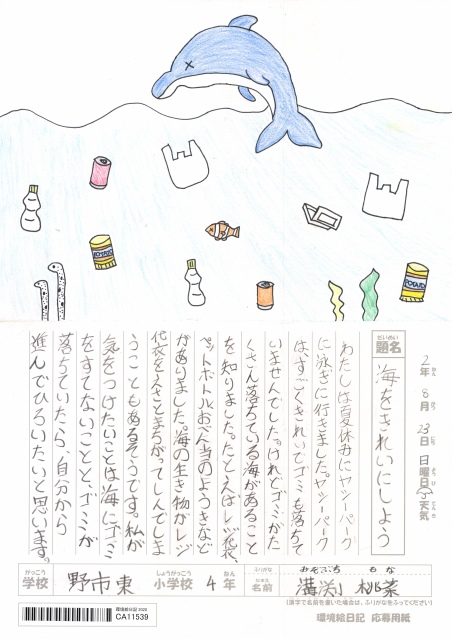 POTATO
POTATO
だいめい
題名
海をきれいにしよう
2年8月23日日曜日
天気
わたしは夏休みにヤシィパーク
に泳ぎに行きました。ヤシィパーク
は、すごくきれいでゴミも落ちて
いませんでした。けれどゴミがた
くさん落ちている海があること
を知りました。たとえばレジ袋
ペットボトルおべん当のようきなど
がありました。海の生き物がレジ
袋をえさとまちがってしんでしま
うこともあるそうです。私が
気をつけたいことは海にゴミ
をすてないことと、ゴミが
落ちていたら、自分から
進んでひろいたいと思います。
がっこう しょうがっこう ねん ふりがな みぞぶち もな
学校 野市東 小学校 4年 なまえ 名前 溝渕 桃菜
(漢字で名前を書いた場合は、ふりがなをふってください)
環境絵日記 2020
CA11539
環境絵日記 応募用紙